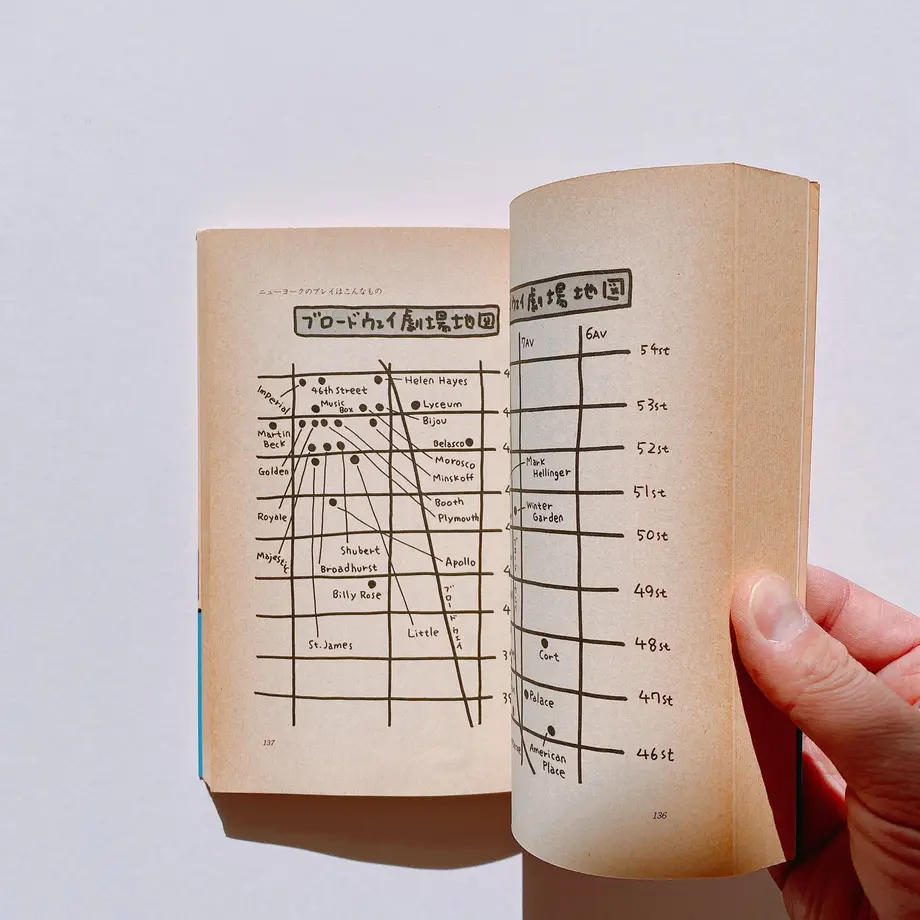 ェイ劇場地図
7AV
6AV
54st
53st
52st
Mark
Hellinger
51st
Winter
Garden
50st
49st
48st
Cort
47st
Palace
46st
American
Place
136
ニューヨークのプレイはこんなもの
ブロードウェイ劇場地図
Imperial
46th Street
Helen Hayes
Music
Box
Lyceum
Bijou
Martin
Beck
Belasco
Golden
Morosco
Minskoff
Booth
Royale
Plymouth
Majestic
Shubert
Broadhurst
Apollo
Billy Rose
ブロードウェイ
Little
St. James
137